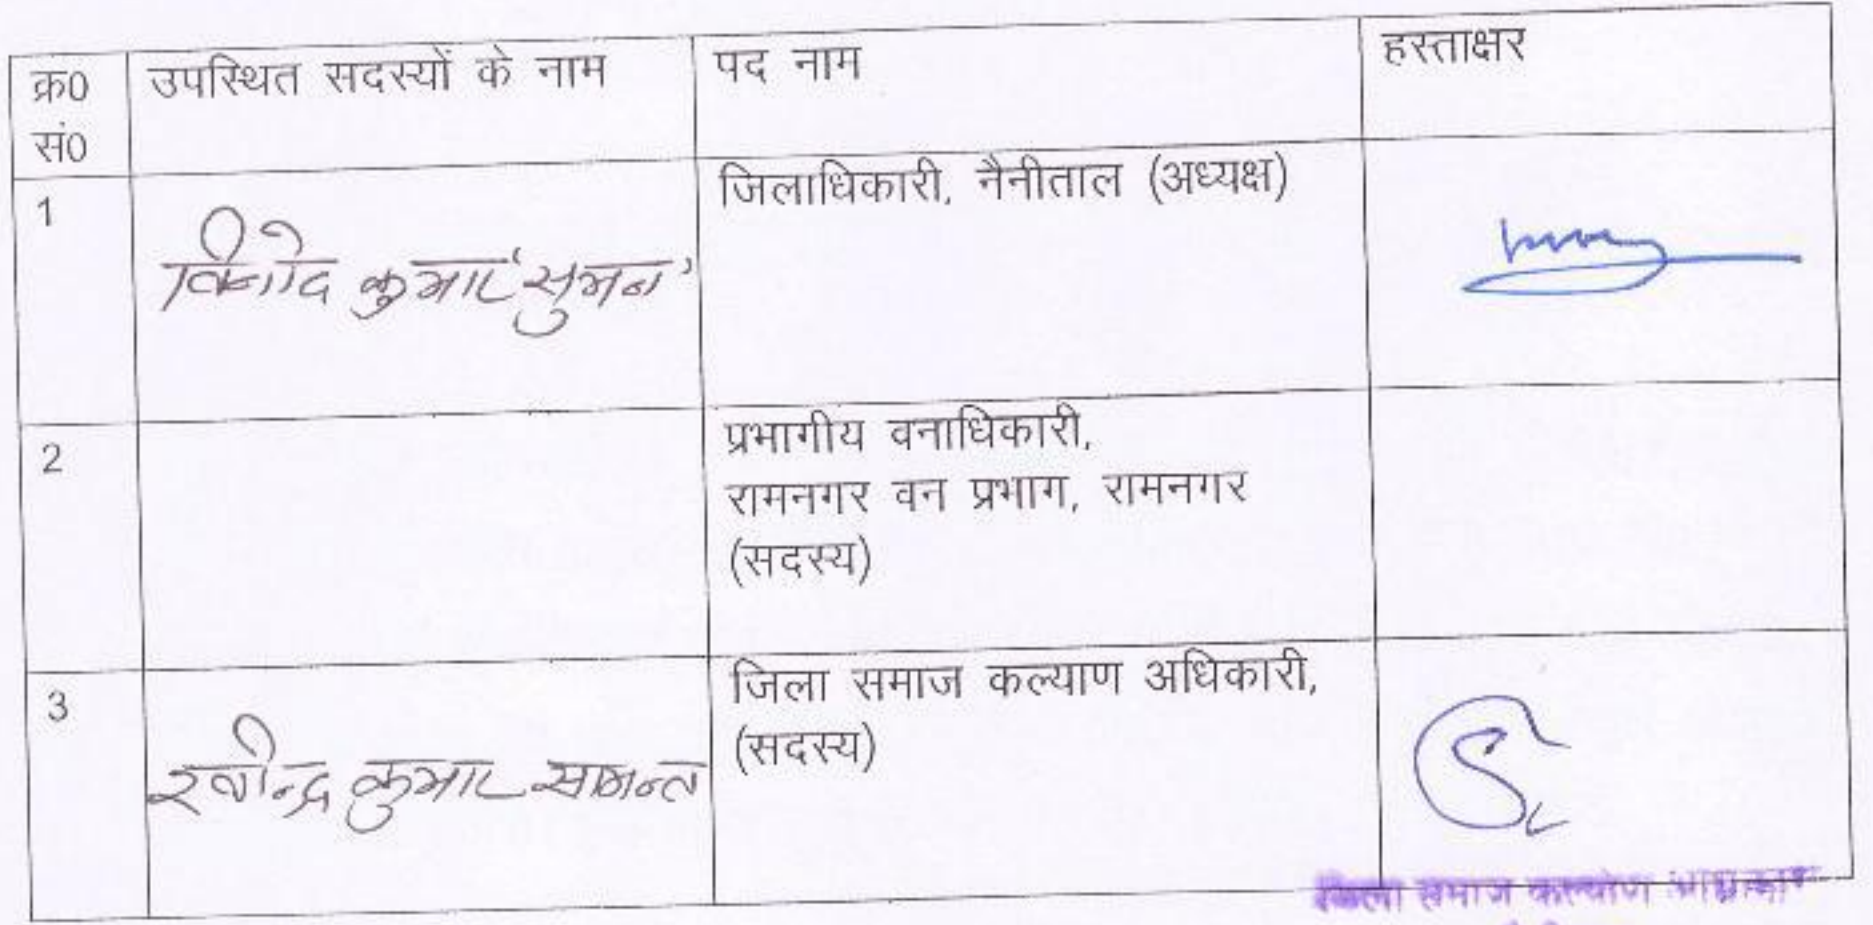 क्र0 सं0 उपस्थित सदस्यों के नाम पद नाम हस्ताक्षर
1 विनोद कुमार 'सुमन' जिलाधिकारी, नैनीताल (अध्यक्ष)
2 प्रभागीय वनाधिकारी,
रामनगर वन प्रभाग, रामनगर
(सदस्य)
3 रवीन्द्र कुमार सामन्त जिला समाज कल्याण अधिकारी,
(सदस्य)
जिला समाज कल्याण